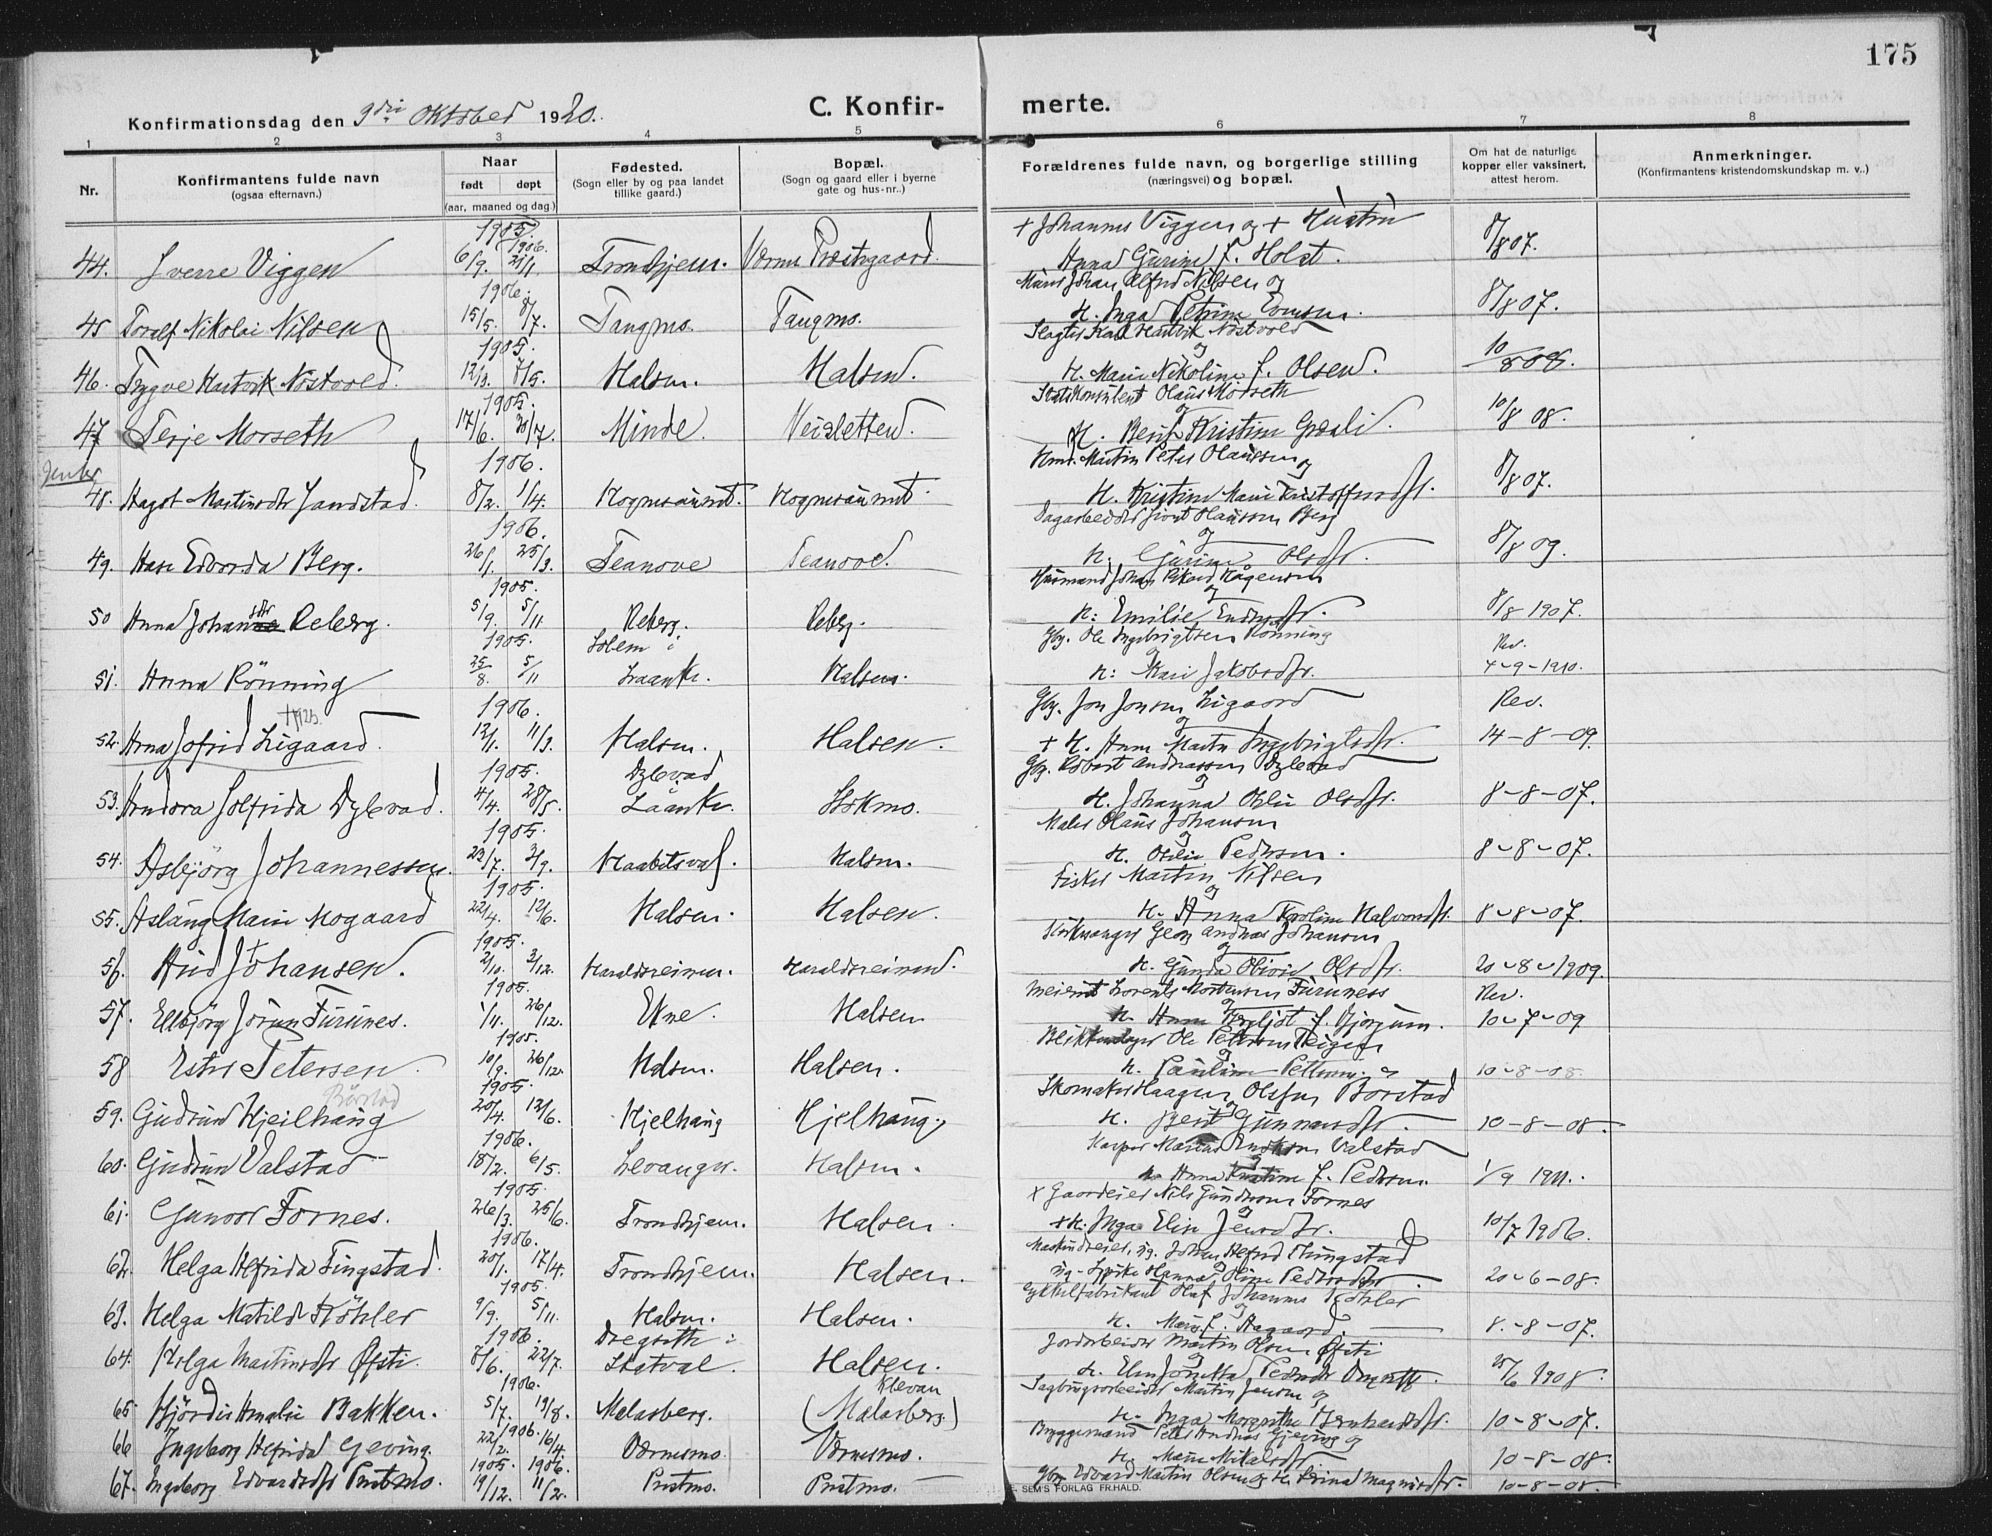 175
Konfirmationsdag den 9di Oktober 1920.
C. Konfirmerte.
1 2 3 4 5 6 7 8
Nr.
Konfirmantens fulde navn
(ogsaa efternavn.)
Naar
født døpt
(aar, maaned og dag.)
Fødested.
(Sogn eller by og paa landet
tillike gaard.)
Bopæl.
(Sogn og gaard eller i byerne
gate og hus-nr..)
Forældrenes fulde navn, og borgerlige stilling
(næringsvei) og bopæl.
Om hat de naturlige
kopper eller vaksinert,
attest herom.
Anmerkninger.
(Konfirmantens kristendomskundskap m. v..)
+ Johannes Viggen og + Hustru
44. Sverre Viggen 1905. 6/9. 1906. 21/1. Trondhjem. Værnes Præstegaard. Anna Gurine f. Holst. 8/8 07.
Murer Johan Alfred Nilsen og
45 Toralf Nikolai Nilsen 1906. 15/5. 8/7. Tangmo. Tangmo. H. Inga Petrine 8/8 07.
Slagter Karl Hartvik Nostvold og
46. Trygve Hartvik Nostvold. 1905. 12/3. 7/5. Halsen. Halsen. H. Marie Nikoline f. Olsen. 10/8 08.
Statskonsulent Olaus Morseth og
47 Terje Morseth 1905. 17/6. 30/7. Minde. Veisletten. H. Berit Kristine Græsli. 10/8 08.
Martin Peter Olaussen og
48. Hagot Martinsdtr Sandstad. 1906. 8/2. 1/4. H. Kristine Marie Kristoffersdtr. 8/8 07.
Dagarbeider Sivert Olaussen Berg og
49. Hase Edvarda Berg. 1906. 26/1. 25/3. Teanove H. Gurine Olsdtr. 8/8 09.
Husmand Johan Rikard Haagensen og
50 Anna Johansdtr Reberg. 1905. 5/9. 5/11 Reberg. Reberg. H: Emilie Endresdtr. 8/8 1907.
Gbr. Ole Ingebrigtsen Rönning
51. Anna Rönning 1905. 25/8. 5/11 Solem i Laanke. Halsen. H: Kari Jakobsdtr. Rev. 4-9-1910.
Gbr. Jon Jonsen Ligaard og
52. Arna Jofrid Ligaard. 1906. 12/1. 11/3. Halsen. Halsen. + H. Anne Marta Ingebrigtsdtr. Rev. 14-8-09.
Gbr. Robert Andreassen Dylevad og
53. Andora Solfrida Dylevad. 1905. 4/4. 28/5. Dylevad Laanke. Stokmo. H. Johanna Otelie Olsdtr. 8-8-07.
Maler Olaus Johansen og
54. Asbjörg Johannessen. 1905. 23/7. 3/9. Haabetsvol. Halsen. H. Otilie Pedersen. 8-8-07.
Fisker Martin Nilsen og
55. Aslaug Marie Mogaard 1905. 22/4. 12/6. Halsen. Halsen. H. Anna Karoline Halvorsdtr. 8-8-07.
Georg Andreas Johansen og
56. Aud Johansen. 1905. 2/10. 3/12. Haraldsreinen. Haraldsreinen. H. Gunda Olivie Olsdtr. 20-8-1909.
Meierist Lorents Mortensen Furuness og
57. Ellbjörg Jorun Furunes. 1905. 1/11. 26/12. Ekne. Halsen H. Anne Bergljot f. Gjorgum. Rev. 10-7-09
Blikkenslager Ole Pettersen og
58 Ester Petersen 1905. 10/9. 26/12. Halsen. Halsen. H. Pauline 10-8-08.
Skomaker Haagen Olsen Borstad og
59. Gudrun Hjelhaug Börstad 1905. 20/4. 12/6. Hjelhaug Hjelhaug. H. Berit Gunnarsdtr. 10-8-08.
Kaspar Marius Valstad
60. Gudrun Valstad 1906. 18/2. 6/5. Levanger. Halsen. H. Anna Kristine f. Pedersen. 1/9 1911.
+ Gaardeier Nils Gundersen Fornes og
61. Gunvor Fornes. 1905. 26/3. 25/6. Trondhjem. Halsen. + H. Inga Elise Jensdtr. 10/7 1906.
Maskindreier, ug. Johan Alfred Thingstad
62. Helga Alfrida Tingstad. 1906. 20/1. 17/4. Trondhjem. Halsen. ug. Hanna Oline Pedersdtr. 20-6-08.
Cykkelfabrikant Olaf Johannes Köhler og
63. Helga Matilde Köhler 1905. 9/9. 5/11. Halsen. Halsen. H. Marie f. Aagaard. 8.-8-07.
Jordarbeider Martin Olsen Øfsti og
64. Helga Martinsdtr Øfsti. 1906. 8/6. 22/7. Skatval. Halsen. H. Elen Jonetta Pedersdtr 25/6 1908.
Sagbrugsarbeider Martin Jensen og
65. Hjördis Amalie Bakken. 1906. 5/7. 19/8. Malasberg. Klevan (Malasberg) H. Inga Margrethe Bernhardsdtr. 10-8-07.
Bryggemand Peter Andreas Gjeving og
66 Ingeborg Alfrida Geving. 1906. 22/2. 16/4. Værnesmo. Værnesmo. H. Marie Mikalsdtr. 10-8-08.
67. Ingeborg Edvardsdtr Prestmo. 1905. 19/12. 1906. 11/2. Prestmo. Prestmo. Gbr. Edvard Martin Olsen og H. Serina Magnusdtr. 10-8-08.
SEM'S FORLAG FR.HALD.